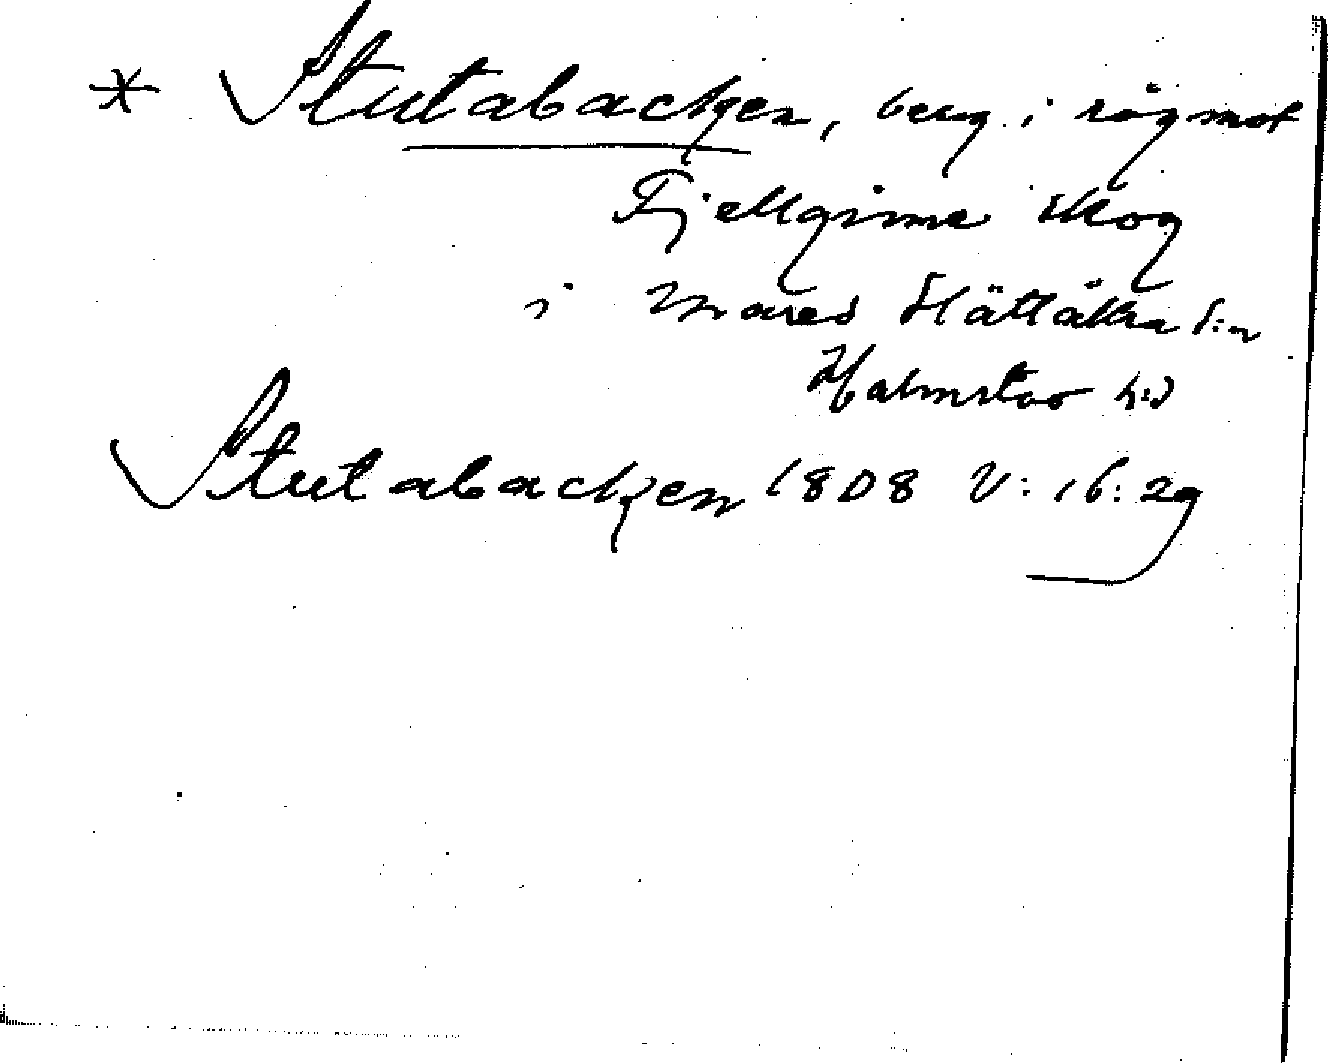 * Stutabacken, berg i råg mot
Fjellgime skog
i Mared Slättåkra s:n
Halmstad h:d
Stutabacken 1808 V: 16: 29